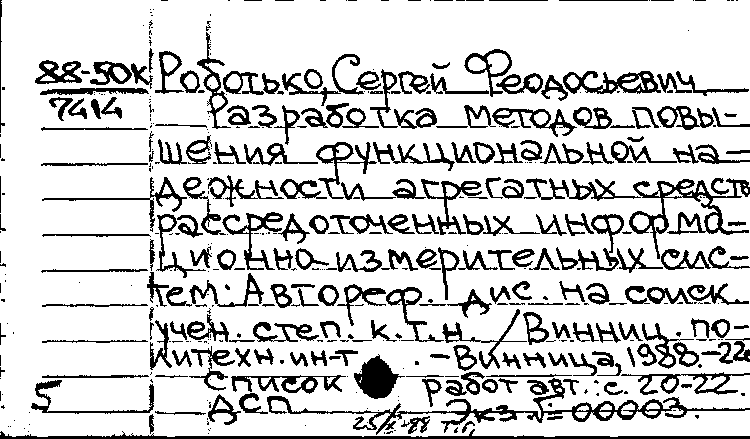 88-50К Роботько, Сергей Феодосьевич.
7414 Разработка методов повы-
шения функциональной на-
дежности агрегатных средств
рассредоточенных информа-
ционно-измерительных сис-
тем: Автореф. дис. на соиск.
учен. степ. к.т.н. / Винниц. по-
литехн. ин-т. - Винница, 1988. -22
Список работ авт.: с. 20-22.
5 ДСП. Экз. №=00003.